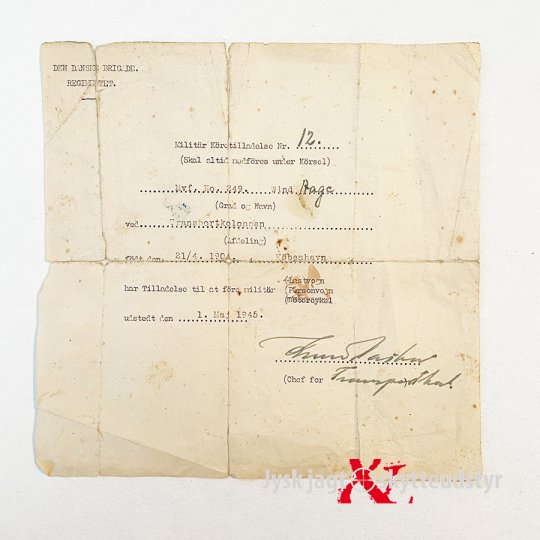 DEN DANSKE BRIGADE.
REGIMENTET.
Militär Köretilladelse Nr. 12.
(Skal altid medföres under Körsel)
Mvf. No. 249. Wind Aage
(Grad og Navn)
ved Transportkolonnen
(Afdeling)
født den 21/4. 1904. i København
har Tilladelse til at före militär (Lastvogn
(Personvogn
(Motorcykel
udstedt den 1. Maj 1945.
(Chef for Transportkol.
Jysk jagt skytteudstyr
XL